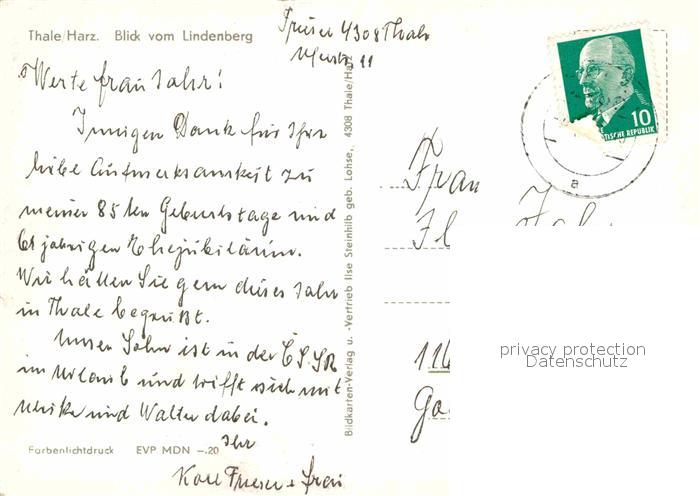 Thale/Harz. Blick vom Lindenberg
4308 Thale
11
Werte Frau Jahr!
Innigen Dank für Ihre
liebe Aufmerksamkeit zu
meiner 85ten Geburtstage und
61 jährigen Ehejubiläum.
Wir hätten Sie gern dieses Jahr
in Thale begrüßt.
Unser Sohn ist in der ČSSR
im Urlaub und trifft sich mit
Ulrike und Walter dabei.
Ihr
Karl + Frau
Farbenlichtdruck EVP MDN -.20
Bildkarten-Verlag u. -Vertrieb Ilse Steinhilb geb. Lohse, 4308 Thale/Harz
10
TISCHE REPUBLIK
a
Frau
114
privacy protection
Datenschutz